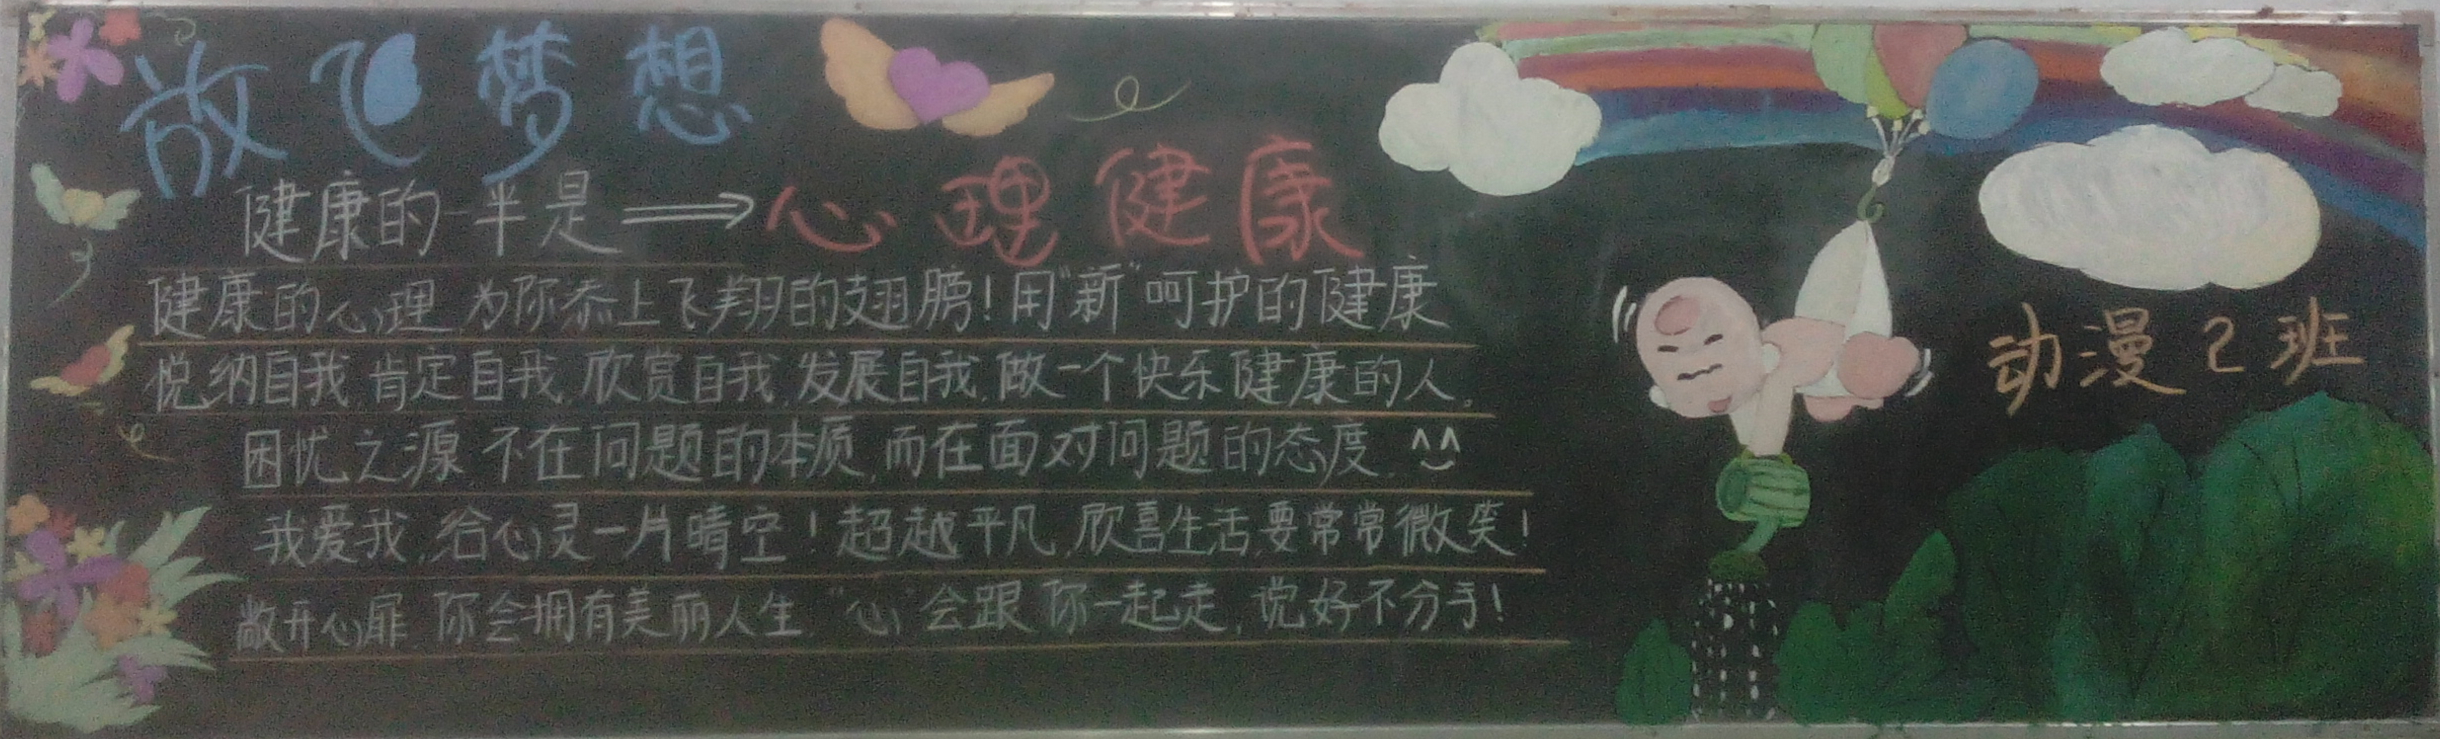 放飞梦想
健康的一半是⟹心理健康
健康的心理,为你添上飞翔的翅膀!用"新"呵护的健康
悦纳自我,肯定自我,欣赏自我,发展自我,做一个快乐健康的人。
困忧之源,不在问题的本质,而在面对问题的态度.^^
我爱我,给心灵一片晴空!超越平凡,欣喜生活,要常常微笑!
敞开心扉,你会拥有美丽人生,"心"会跟你一起走,说好不分手!
动漫2班